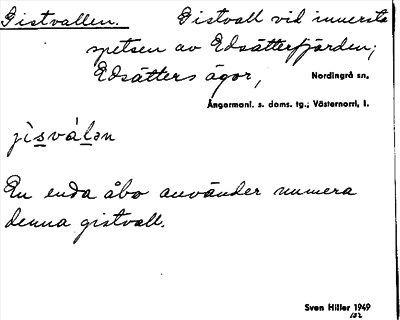 Gistvallen. Gistvall vid innersta
spetsen av Edsätterfjärden;
Edsätters ägor, Nordingrå sn,
Ångermanl. s. doms. tg.; Västernorrl. l.
jìs̲vál̲ən
En enda åbo använder numera
denna gistvall.
Sven Hiller 1949